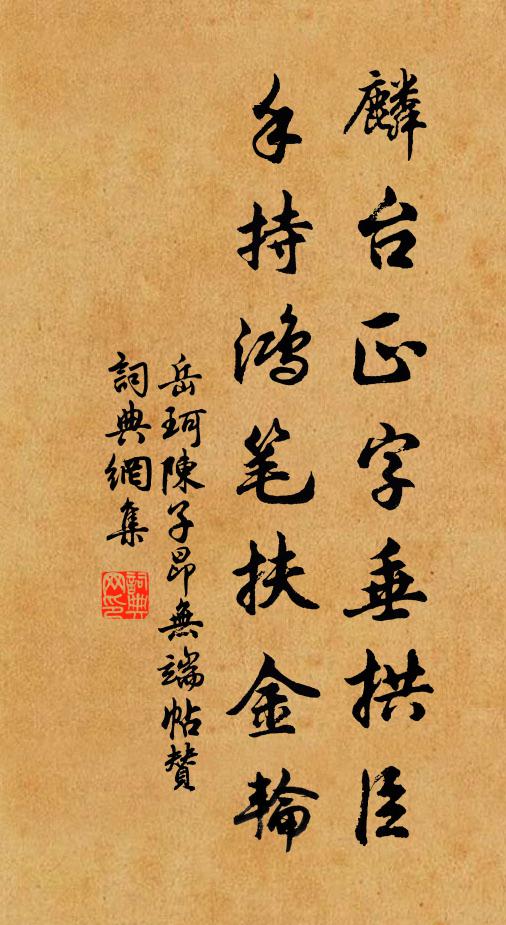 麟台正字垂拱臣
手持鴻笔扶金輪
岳珂陳子昂無端帖贊
詞典網集
詞典网印